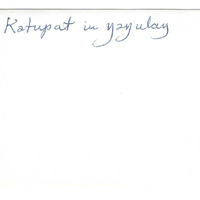 Kətupat in yəyulay